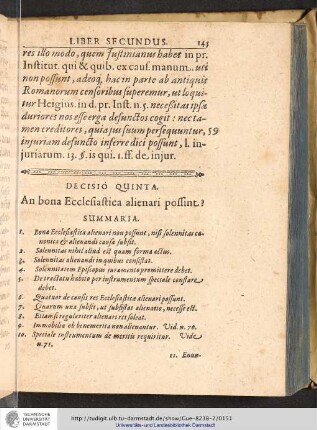 LIBER SECUNDUS. 145
res illo modo, quem Justinianus habet in pr.
Institut. qui & quib. ex cauf. manum.. uti
non possunt, adeoq, hac in parte ab antiquis
Romanorum censoribus superemur, ut loqui-
tur Heigius. in d. pr. Inst. n. 5. necessitas ipsa
duriores nos esse erga defunctos cogit: nec ta-
men creditores, quia jus suum persequuntur, 59
injuriam defuncto inferre dici possunt, l. in-
juriarum. 13. §. is qui. 1. ff. de. injur.
DECISIO QUINTA.
An bona Ecclesiastica alienari possint?
SUMMARIA.
1. Bona Ecclesiastica alienari non possunt, nisi solennitas ca-
nonica & alienandi causa subsit.
2. Solennitas nihil aliud est quam forma actus.
3. Solennitas alienandi in quibus consistat.
4. Solennitatem Episcopus juramento promittere debet.
5. De tractatu habito per instrumentum speciale constare
debet.
6. Quatuor de causis res Ecclesiastica alienari possunt.
7. Quarum una subsit, ut subsistat alienatio, necesse est.
8. Etiamsi regulariter alienari res soleat.
9. Immobilia ob benemerita non alienantur. Vid. n. 70.
10. Speciale instrumentum de meritis requiritur. Vide
n. 71.
11. Eccle-
TECHNISCHE
UNIVERSITÄT
DARMSTADT
http://tudigit.ulb.tu-darmstadt.de/show/Gue-8238-2/0151
Universitäts- und Landesbibliothek Darmstadt